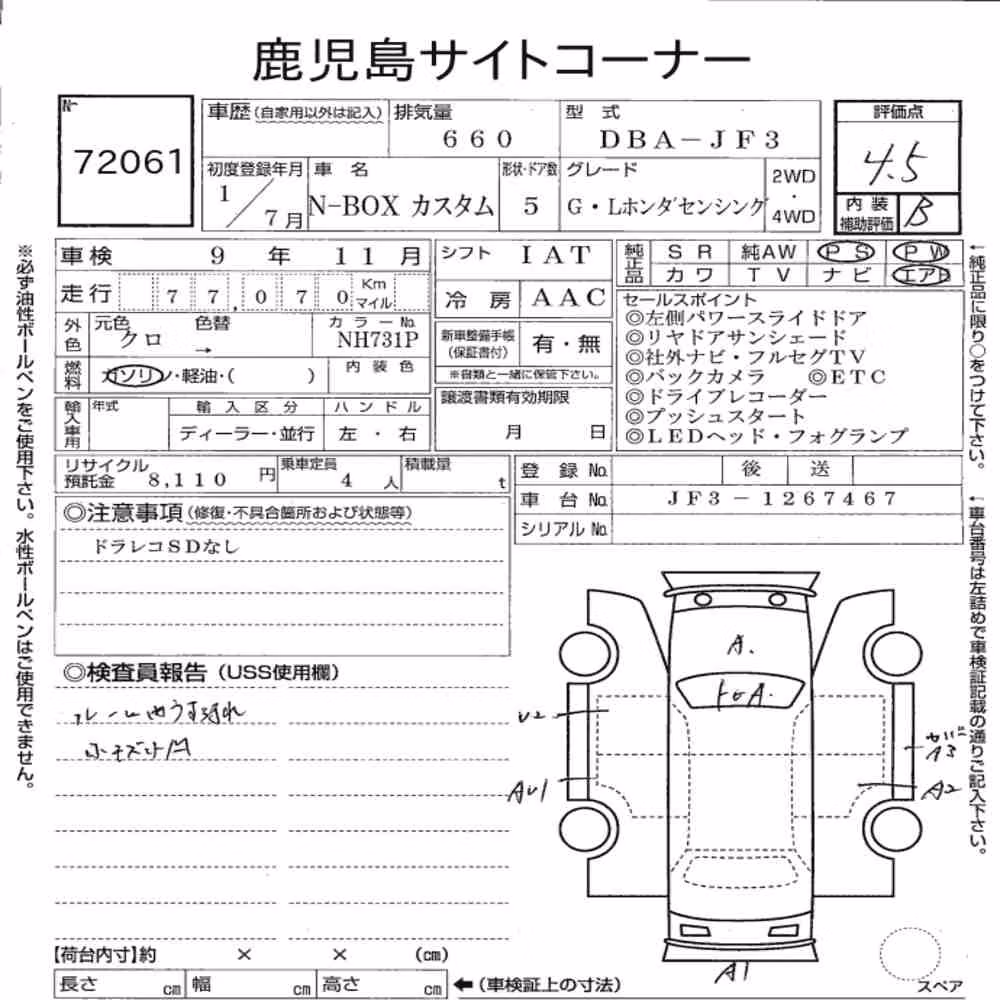 鹿児島サイトコーナー
№
72061
車歴(自家用以外は記入)
排気量
660
型 式
DBA-JF3
評価点
4.5
初度登録年月
1/7月
車 名
N-BOX カスタム
形状・ドア数
5
グレード
G・Lホンダセンシング
2WD
・
4WD
内 装
補助評価
B
※必ず油性ボールペンをご使用下さい。水性ボールペンはご使用できません。
車検 9 年 11 月
シフト IAT
純正品
SR 純AW PS PW
カワ TV ナビ エアB
走行 77,070 Km マイル
冷 房 AAC
外色
元色 クロ
色替
→
カラーNo.
NH731P
新車整備手帳
(保証書付)
有・無
※書類と一緒に保管下さい。
燃料
ガソリン・軽油・( )
内 装 色
輸入車用
年式
輸 入 区 分
ディーラー・並行
ハ ン ド ル
左 ・ 右
譲渡書類有効期限
月 日
セールスポイント
◎左側パワースライドドア
◎リヤドアサンシェード
◎社外ナビ・フルセグTV
◎バックカメラ ◎ETC
◎ドライブレコーダー
◎プッシュスタート
◎LEDヘッド・フォグランプ
←純正品に限り○をつけて下さい。
リサイクル
預託金 8,110 円
乗車定員
4 人
積載量
t
登 録 No. 後 送
車 台 No. JF3-1267467
シリアル No.
←車台番号は左詰めで車検証記載の通りご記入下さい。
◎注意事項(修復・不具合箇所および状態等)
ドラレコSDなし
◎検査員報告(USS使用欄)
小キズ凹
A.
U2
AU1
A3
A2
A1
スペア
【荷台内寸】約 × × (cm)
長さ cm 幅 cm 高さ cm
←(車検証上の寸法)